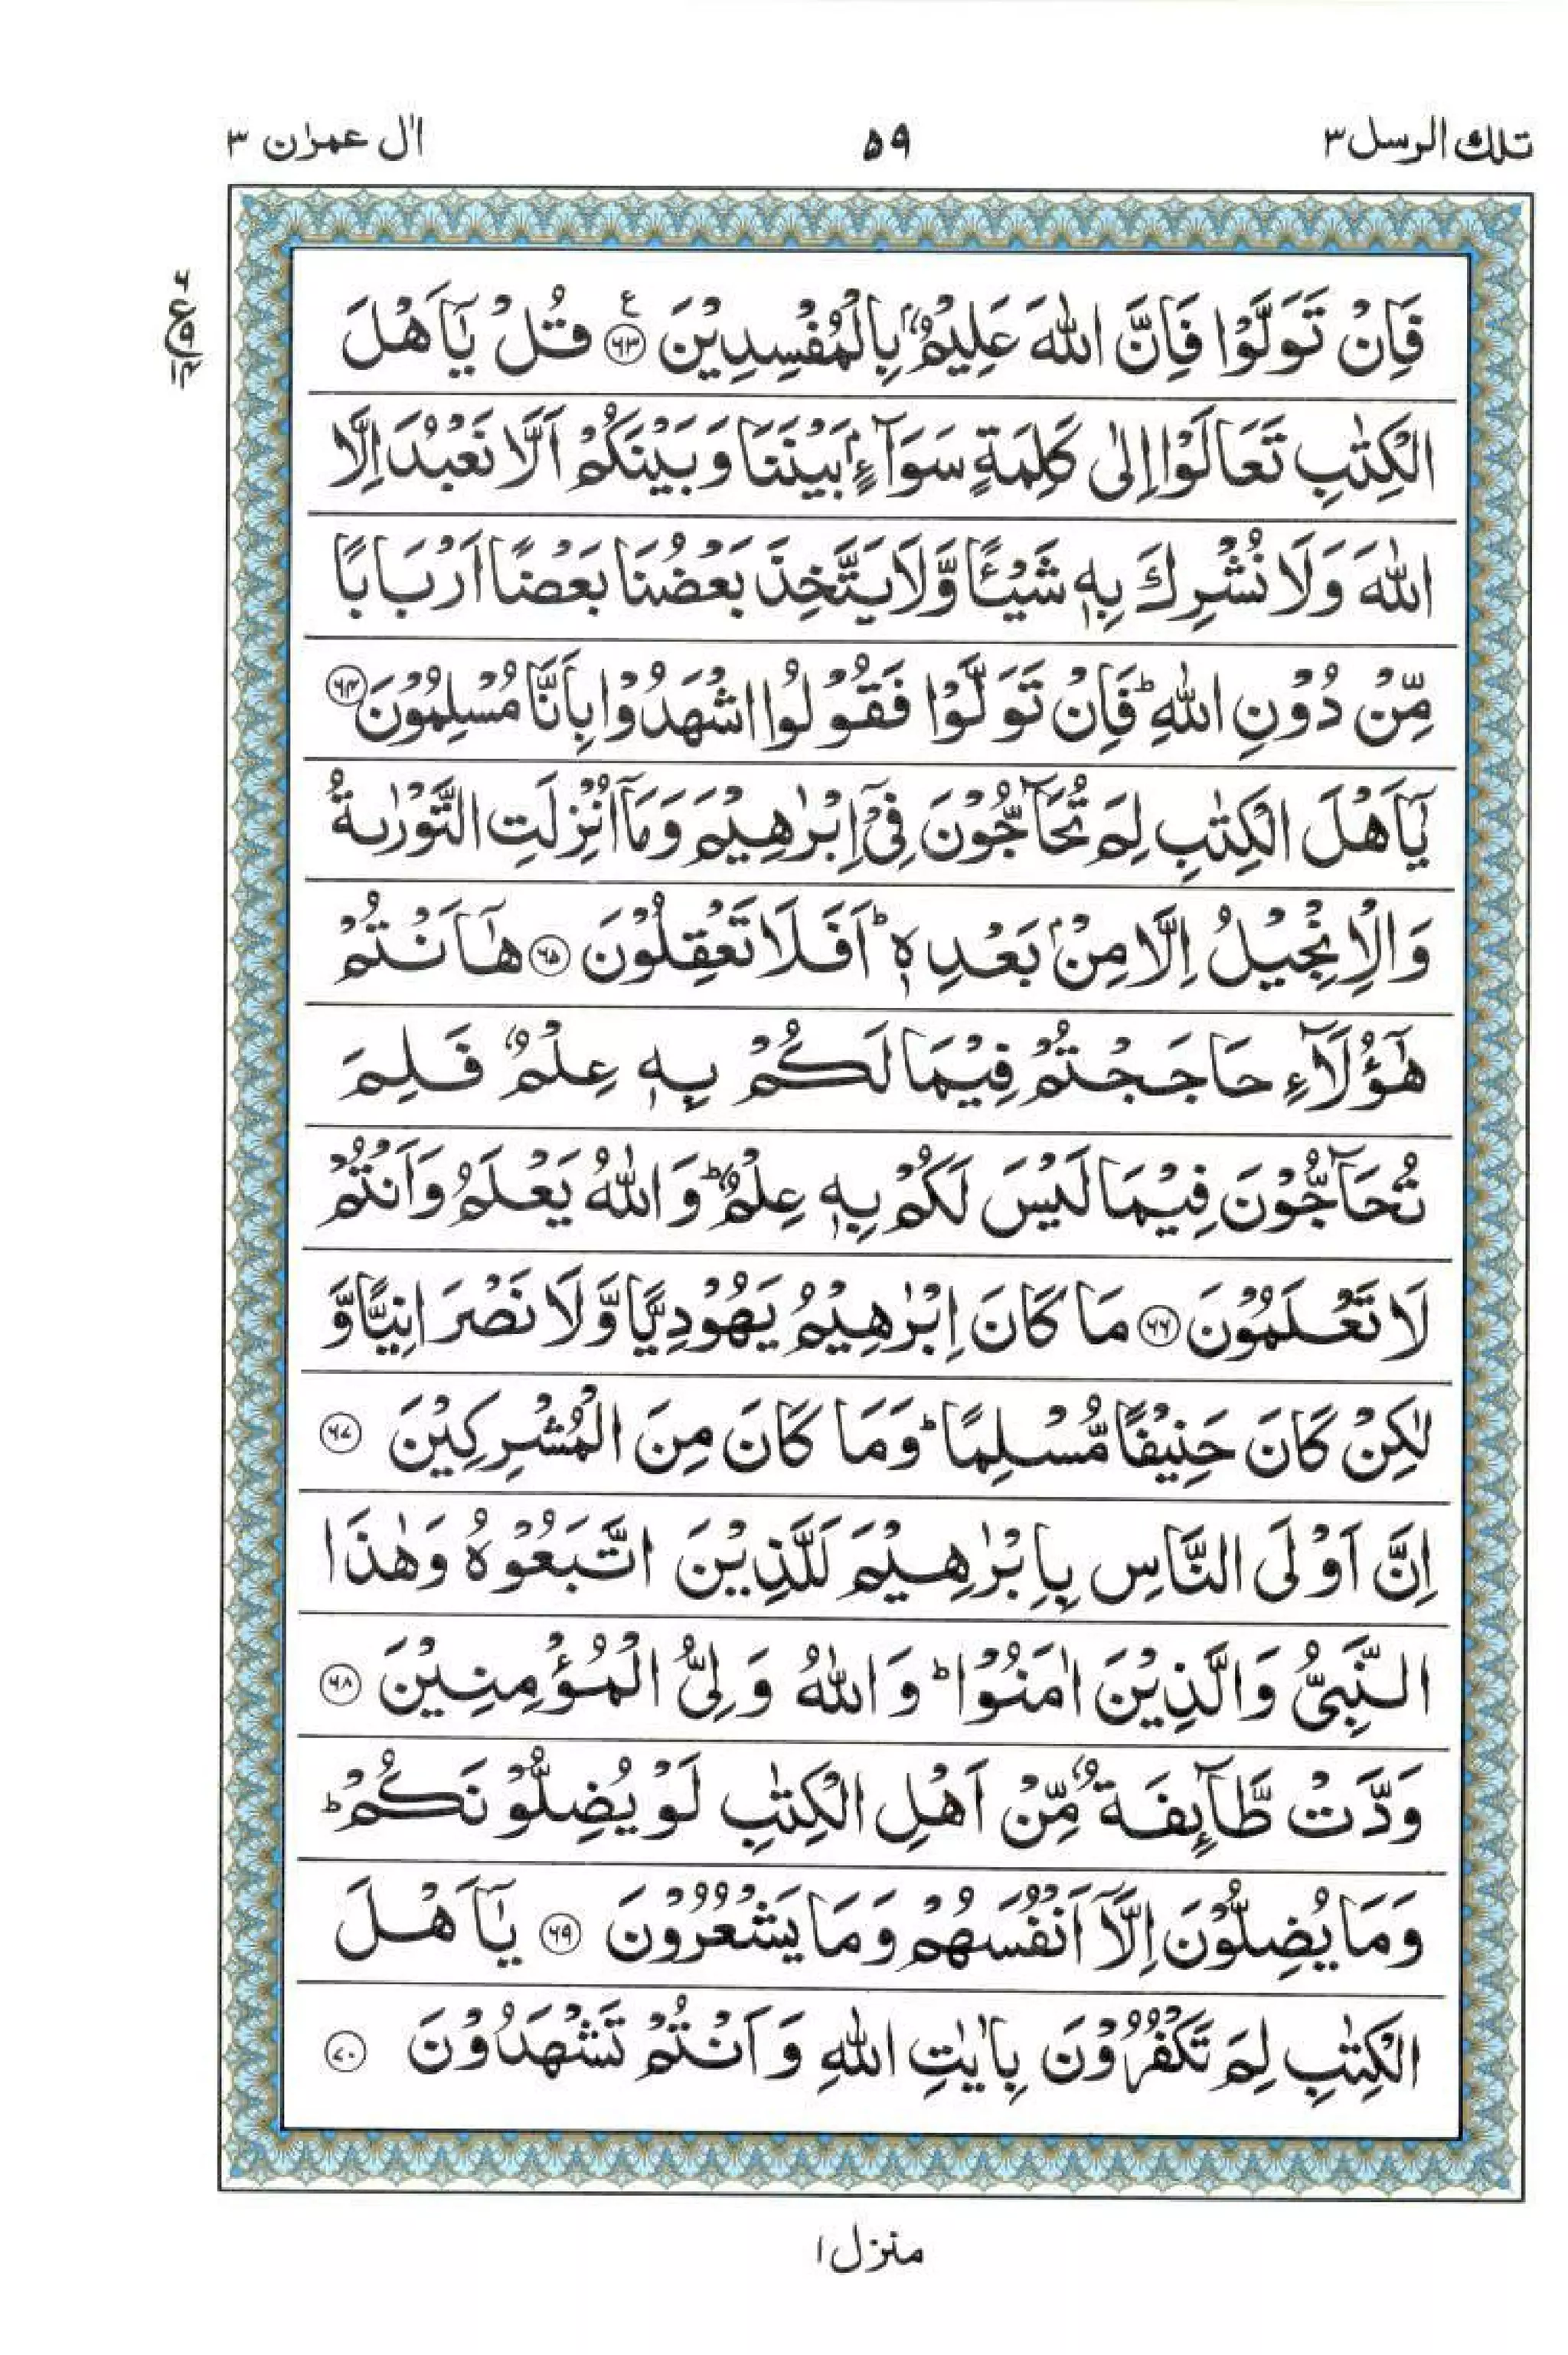 تلك الرسل ٣
۵۹
اٰل عمرٰن ٣
ع ۶ ۹ ۱۴
فَاِنْ تَوَلَّوْا فَاِنَّ اللّٰهَ عَلِيْمٌۢ بِالْمُفْسِدِيْنَ ۶۳ ع قُلْ يٰۤاَهْلَ
الْكِتٰبِ تَعَالَوْا اِلٰى كَلِمَةٍ سَوَآءٍۭ بَيْنَنَا وَبَيْنَكُمْ اَلَّا نَعْبُدَ اِلَّا
اللّٰهَ وَلَا نُشْرِكَ بِهٖ شَيْـًٔا وَّلَا يَتَّخِذَ بَعْضُنَا بَعْضًا اَرْبَابًا
مِّنْ دُوْنِ اللّٰهِ ؕ فَاِنْ تَوَلَّوْا فَقُوْلُوا اشْهَدُوْا بِاَنَّا مُسْلِمُوْنَ ۶۴
يٰۤاَهْلَ الْكِتٰبِ لِمَ تُحَآجُّوْنَ فِيْۤ اِبْرٰهِيْمَ وَمَاۤ اُنْزِلَتِ التَّوْرٰىةُ
وَالْاِنْجِيْلُ اِلَّا مِنْۢ بَعْدِهٖ ؕ اَفَلَا تَعْقِلُوْنَ ۶۵ هٰۤاَنْتُمْ
هٰۤؤُلَآءِ حَاجَجْتُمْ فِيْمَا لَكُمْ بِهٖ عِلْمٌ فَلِمَ
تُحَآجُّوْنَ فِيْمَا لَيْسَ لَكُمْ بِهٖ عِلْمٌ ؕ وَاللّٰهُ يَعْلَمُ وَاَنْتُمْ
لَا تَعْلَمُوْنَ ۶۶ مَا كَانَ اِبْرٰهِيْمُ يَهُوْدِيًّا وَّلَا نَصْرَانِيًّا وَّ
لٰكِنْ كَانَ حَنِيْفًا مُّسْلِمًا ؕ وَمَا كَانَ مِنَ الْمُشْرِكِيْنَ ۶۷
اِنَّ اَوْلَى النَّاسِ بِاِبْرٰهِيْمَ لَلَّذِيْنَ اتَّبَعُوْهُ وَهٰذَا
النَّبِىُّ وَالَّذِيْنَ اٰمَنُوْا ؕ وَاللّٰهُ وَلِىُّ الْمُؤْمِنِيْنَ ۶۸
وَدَّتْ طَّآىِٕفَةٌ مِّنْ اَهْلِ الْكِتٰبِ لَوْ يُضِلُّوْنَكُمْ ؕ
وَمَا يُضِلُّوْنَ اِلَّاۤ اَنْفُسَهُمْ وَمَا يَشْعُرُوْنَ ۶۹ يٰۤاَهْلَ
الْكِتٰبِ لِمَ تَكْفُرُوْنَ بِاٰيٰتِ اللّٰهِ وَاَنْتُمْ تَشْهَدُوْنَ ۷۰
منزل ۱